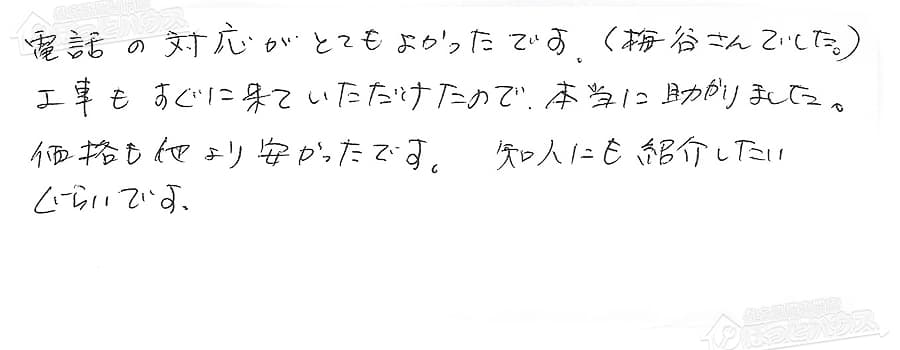 電話の対応がとてもよかったです。(梅谷さんでした。)
工事もすぐに来ていただけたので、本当に助かりました。
価格も他より安かったです。 知人にも紹介したい
ぐらいです。